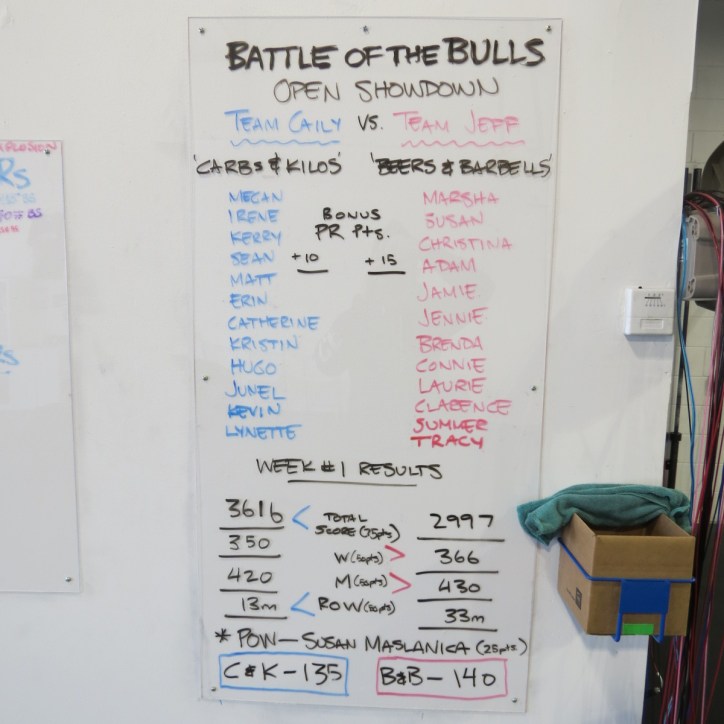 BATTLE OF THE BULLS
OPEN SHOWDOWN
TEAM CAILY VS. TEAM JEFF
'CARBS & KILOS' 'BEERS & BARBELLS'
MEGAN
IRENE
KERRY
SEAN
MATT
ERIN
CATHERINE
KRISTIN
HUGO
JUNEL
KEVIN
LYNETTE
BONUS
PR Pts.
+10 +15
MARSHA
SUSAN
CHRISTINA
ADAM
JAMIE
JENNIE
BRENDA
CONNIE
LAURIE
CLARENCE
SUMLER
TRACY
WEEK #1 RESULTS
3616 < TOTAL SCORE (75pts) 2997
350 W (50pts) > 366
420 M (50pts) > 430
13m < ROW (50pts) 33m
* POW - SUSAN MASLANICA (25pts.)
C & K - 135 B&B - 140